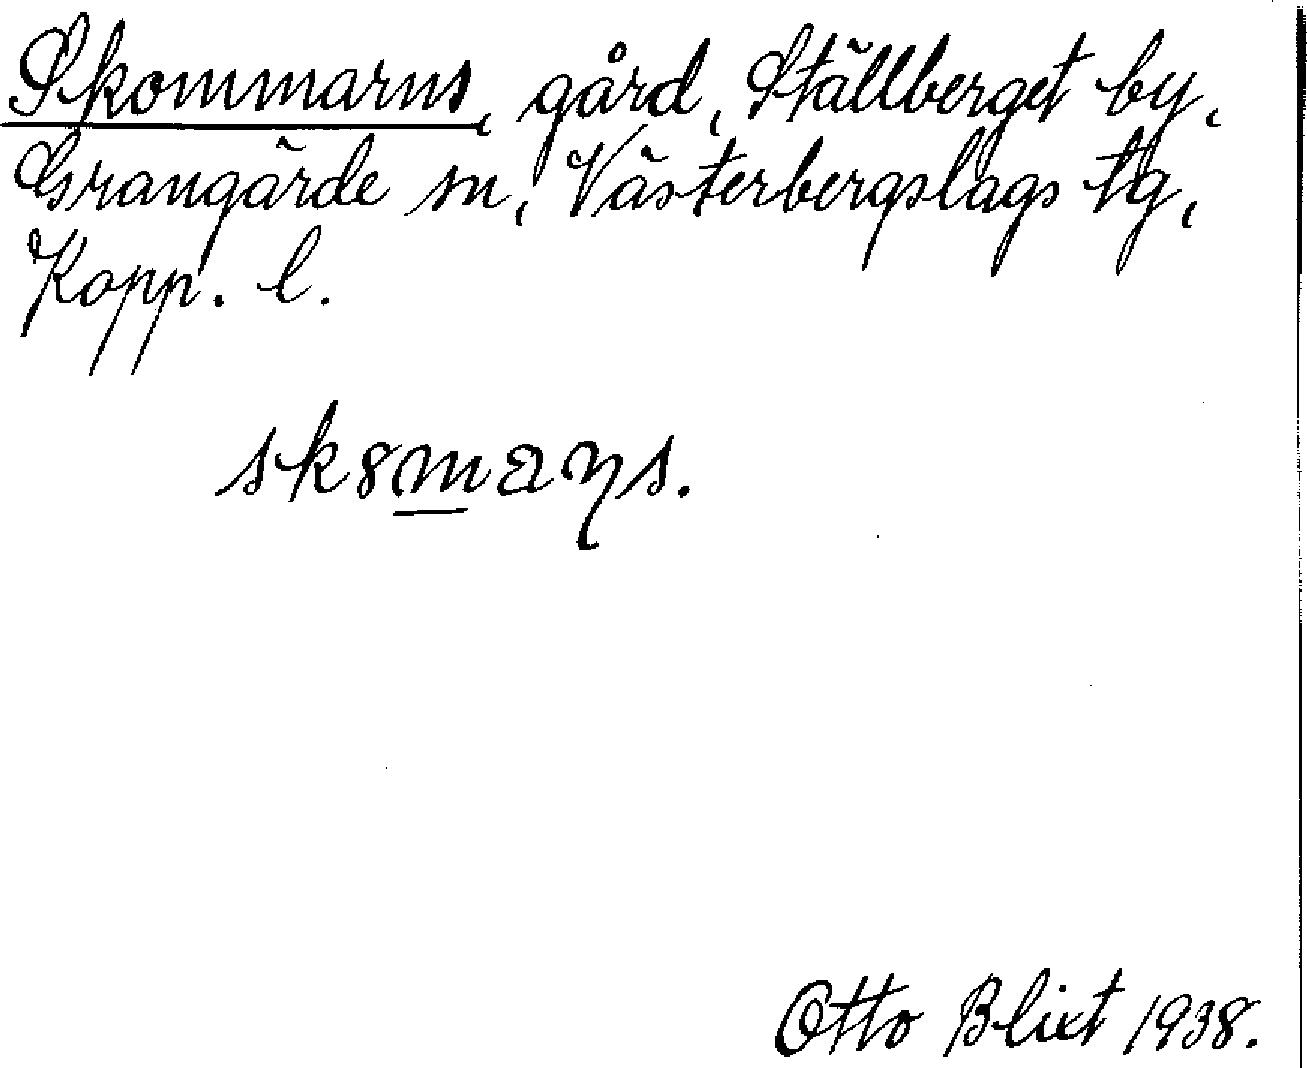 Skommarns, gård, Ställberget by,
Grangärde sn, Västerbergslags tg,
Kopp. l.
sk8maɳs.
Otto Blixt 1938.